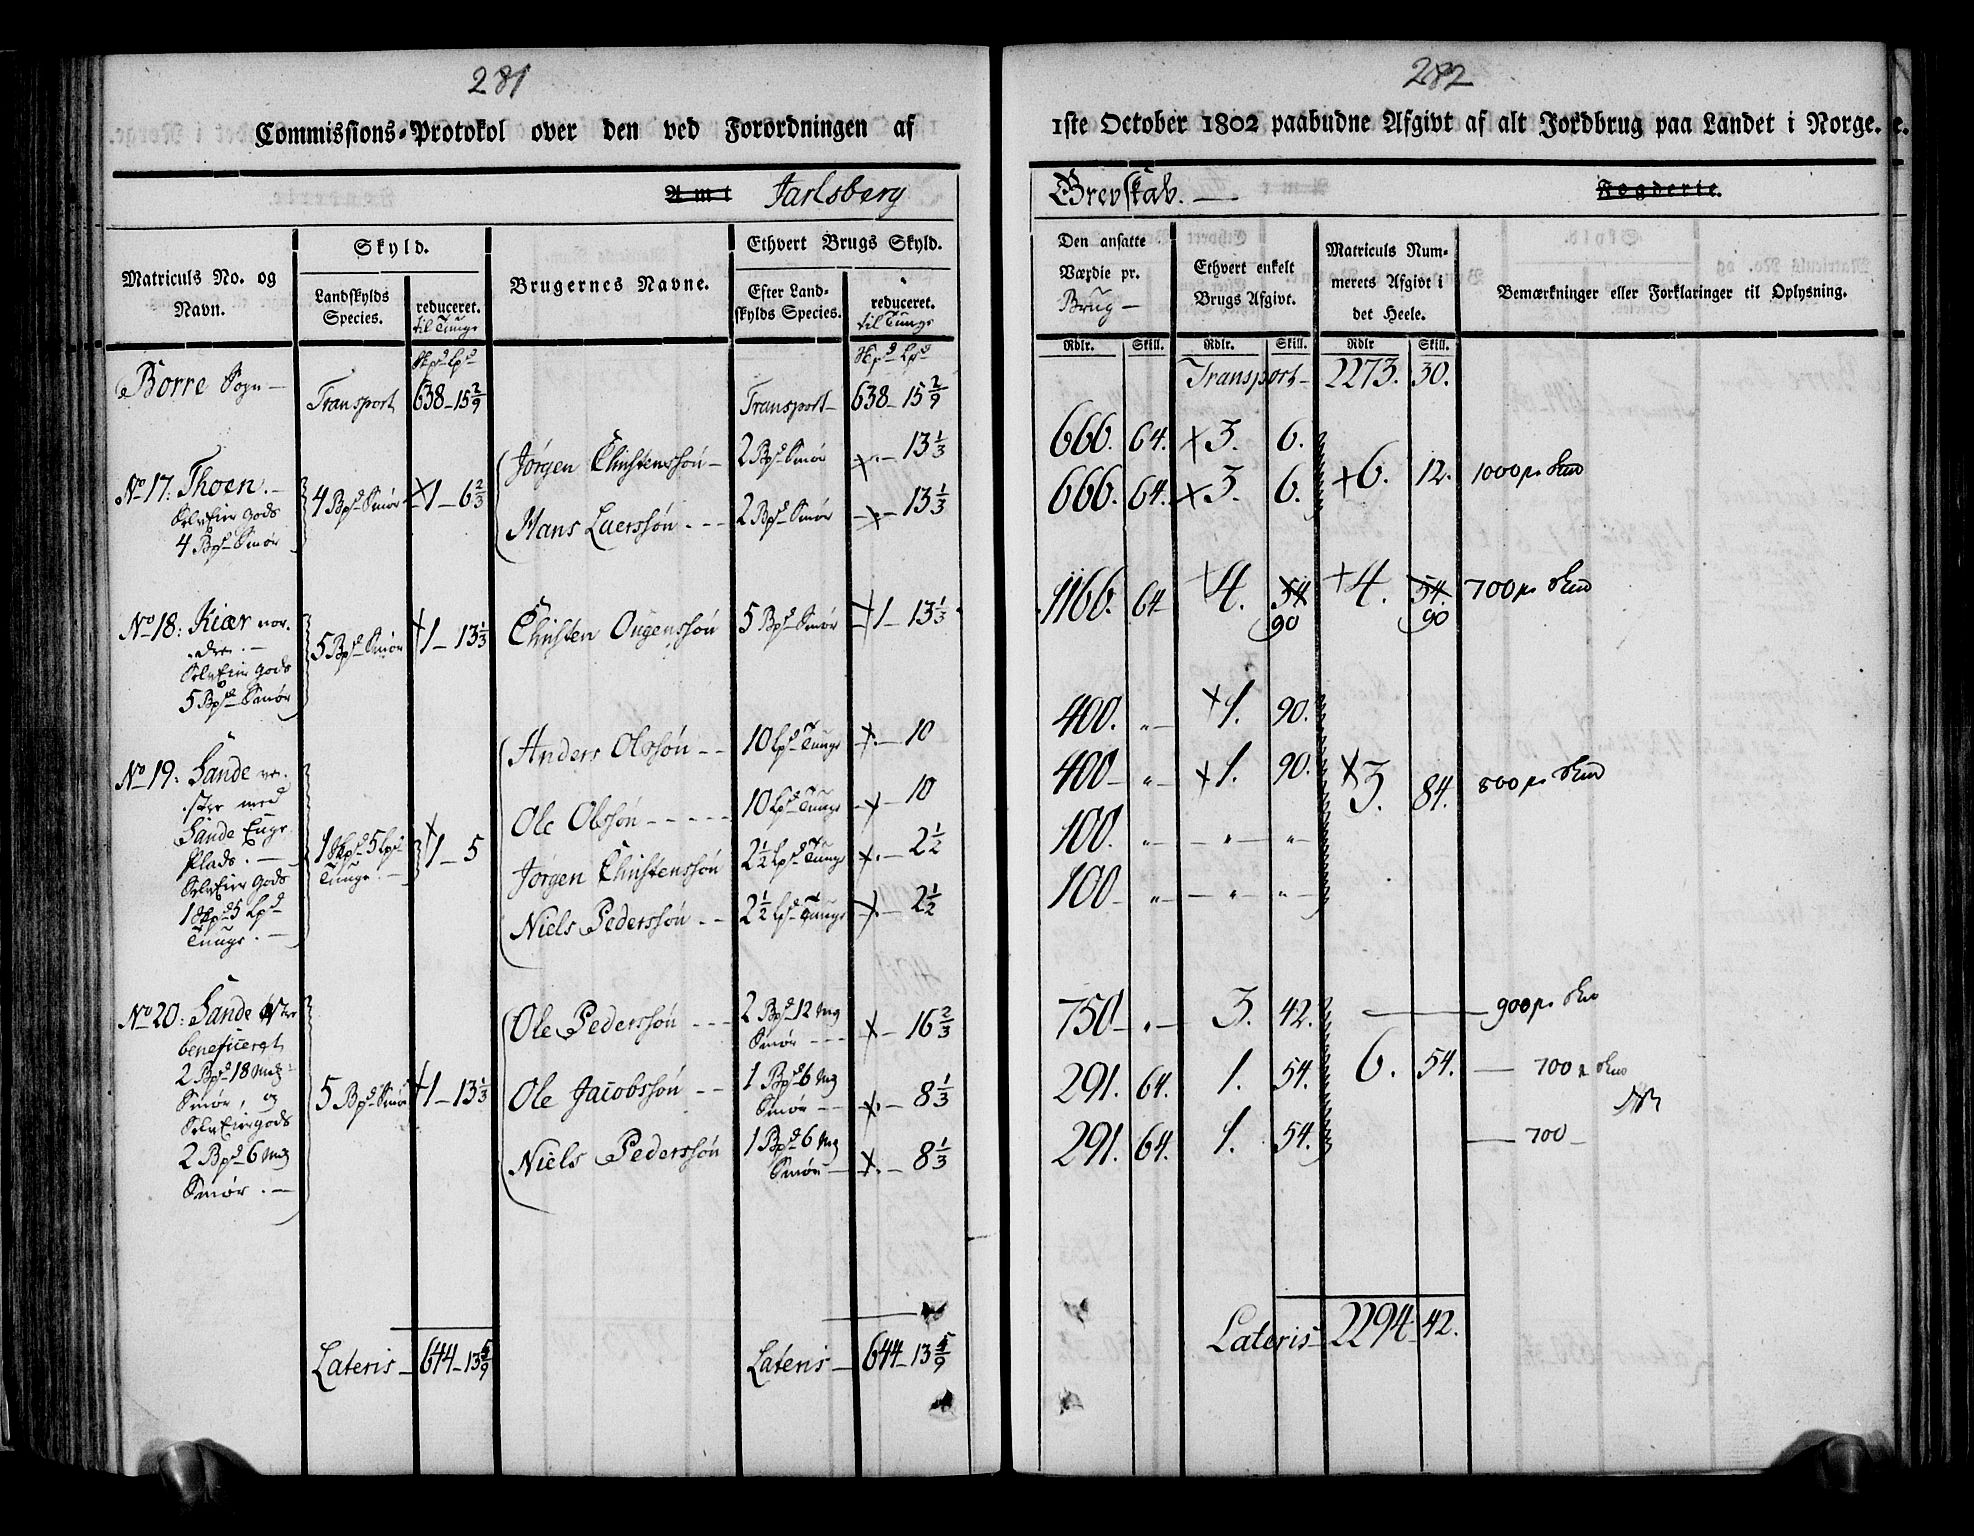 281
Commissions-Protokol over den ved Forordningen af
Amt Jarlsberg
Matriculs No. og Navn.
Skyld.
Landskylds Species.
reduceret. til Tunge
Brugernes Navne.
Ethvert Brugs Skyld.
Efter Landskylds Species.
reduceret. til Tunge
Skpd Lpd
Skpd Lpd
Borre Sogn — Transport 638 – 15 2/9 Transport – 638 – 15 2/9
No 17: Thoen. –
Selveier Gods
4 Bpd Smør
4 Bpd Smør 1 – 6 2/3
Jørgen Christenssøn – 2 Bpd Smør 13 1/3
Hans Luerssøn - - - 2 Bpd Smør 13 1/3
No 18: Kiær nor-
dre. –
Selveier Gods
5 Bpd Smør
5 Bpd Smør 1 – 13 1/3
Christen Ougenssøn 5 Bpd Smør 1 – 13 1/3
No 19: Sande ve-
stre med
Sande Enge
Plads. –
Selveier Gods
1 Skpd 5 Lpd
Tunge. –
1 Skpd 5 Lpd Tunge. – 1 – 5
Anders Olssøn - - 10 Lpd Tunge 10
Ole Olssøn - - - - - 10 Lpd Tunge 10
Jørgen Christenssøn 2 1/2 Lpd Tunge 2 1/2
Niels Pederssøn - - 2 1/2 Lpd Tunge 2 1/2
No 20: Sande østre
beneficeret
2 Bpd 18 Mk
Smør, og
Selveiergods
2 Bpd 6 Mk
Smør. –
5 Bpd Smør 1 – 13 1/3
Ole Pederssøn - - - 2 Bpd 12 Mk Smør - - - 16 2/3
Ole Jacobssøn - - 1 Bpd 6 Mk Smør - - 8 1/3
Niels Pederssøn 1 Bpd 6 Mk Smør – 8 1/3
Lateris – 644 – 13 5/9 Lateris – 644 – 13 5/9
282
1ste October 1802 paabudne Afgivt af alt Jordbrug paa Landet i Norge.
Grevskab. — Fogderie.
Den ansatte Værdie pr. Brug –
Ethvert enkelt Brugs Afgivt.
Matriculs Nummerets Afgivt i det Heele.
Bemærkninger eller Forklaringer til Oplysning.
Rdlr. Skill. Rdlr. Skill. Rdlr Skill.
Transport – 2273. 30.
666. 64. 3. 6.
666. 64. 3. 6. 6. 12. 1000
1166. 64 4. 54 90 4. 54. 90 700
400. „ – 1. 90.
400 – „ – 1. 90. 3. 84. 800
100. „ – „ – „ –
100 – „ – „ – „ –
750 – „ – 3. 42. — 900
291. 64. 1. 54. 6. 54. — 700
291. 64. 1. 54. — 700 –
Lateris – 2294 – 42.